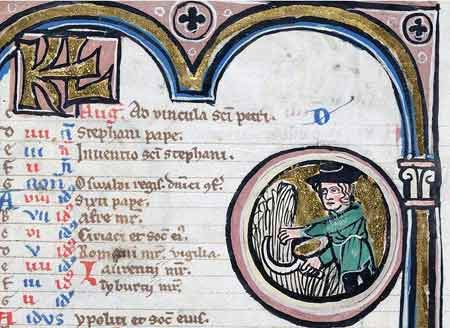 KL
c Aug. Ad vincula sci petri. D
d iiii n Stephani pape.
e iii n Inventio sci stephani.
f ii n
g non Oswaldi regis. dnici cf.
A viii id Sixti pape
b vii id Afre mr.
c vi id Ciriaci et soc ei.
d v id Romani mr. vigilia
e iiii id Laurentii mr.
f iii id Tyburtii mr.
g ii id
A idus ypoliti et soc eius.